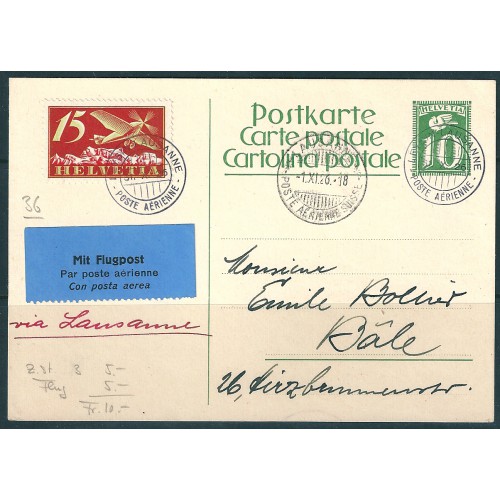 15
HELVETIA
LAUSANNE
POSTE AÉRIENNE
36
Postkarte
Carte postale
Cartolina postale
-1.XI.26.-18
POSTE AÉRIENNE SUISSE
HELVETIA
10
LAUSANNE
- POSTE AÉRIENNE -
Mit Flugpost
Par poste aérienne
Con posta aerea
via Lausanne
Z.St. 8 5.-
Flug 5.-
Fr. 10.-
Monsieur
Emile Bollier
Bâle
26, Hirzbrunnenstr.